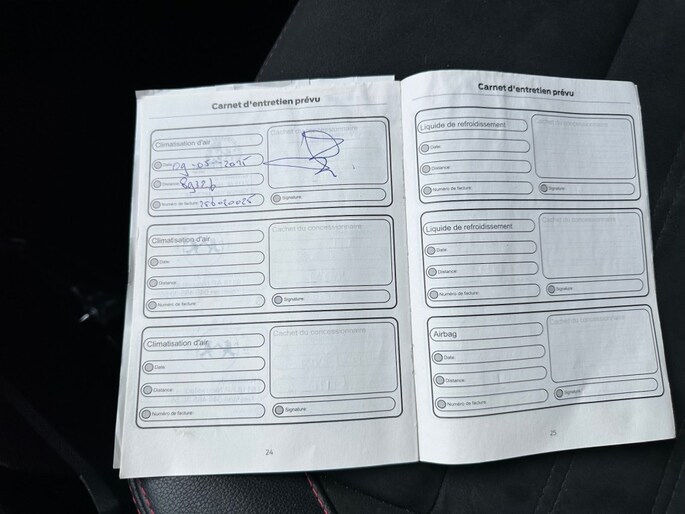 Carnet d'entretien prévu
Climatisation d'air
Cachet du concessionnaire
Date
Distance
Numéro de facture
Signature
Climatisation d'air
Cachet du concessionnaire
Date
Distance
Numéro de facture
Signature
Climatisation d'air
Cachet du concessionnaire
Date
Distance
Numéro de facture
Signature
24
Carnet d'entretien prévu
Liquide de refroidissement
Cachet du concessionnaire
Date
Distance
Numéro de facture
Signature
Liquide de refroidissement
Cachet du concessionnaire
Date
Distance
Numéro de facture
Signature
Airbag
Cachet du concessionnaire
Date
Distance
Numéro de facture
Signature
25